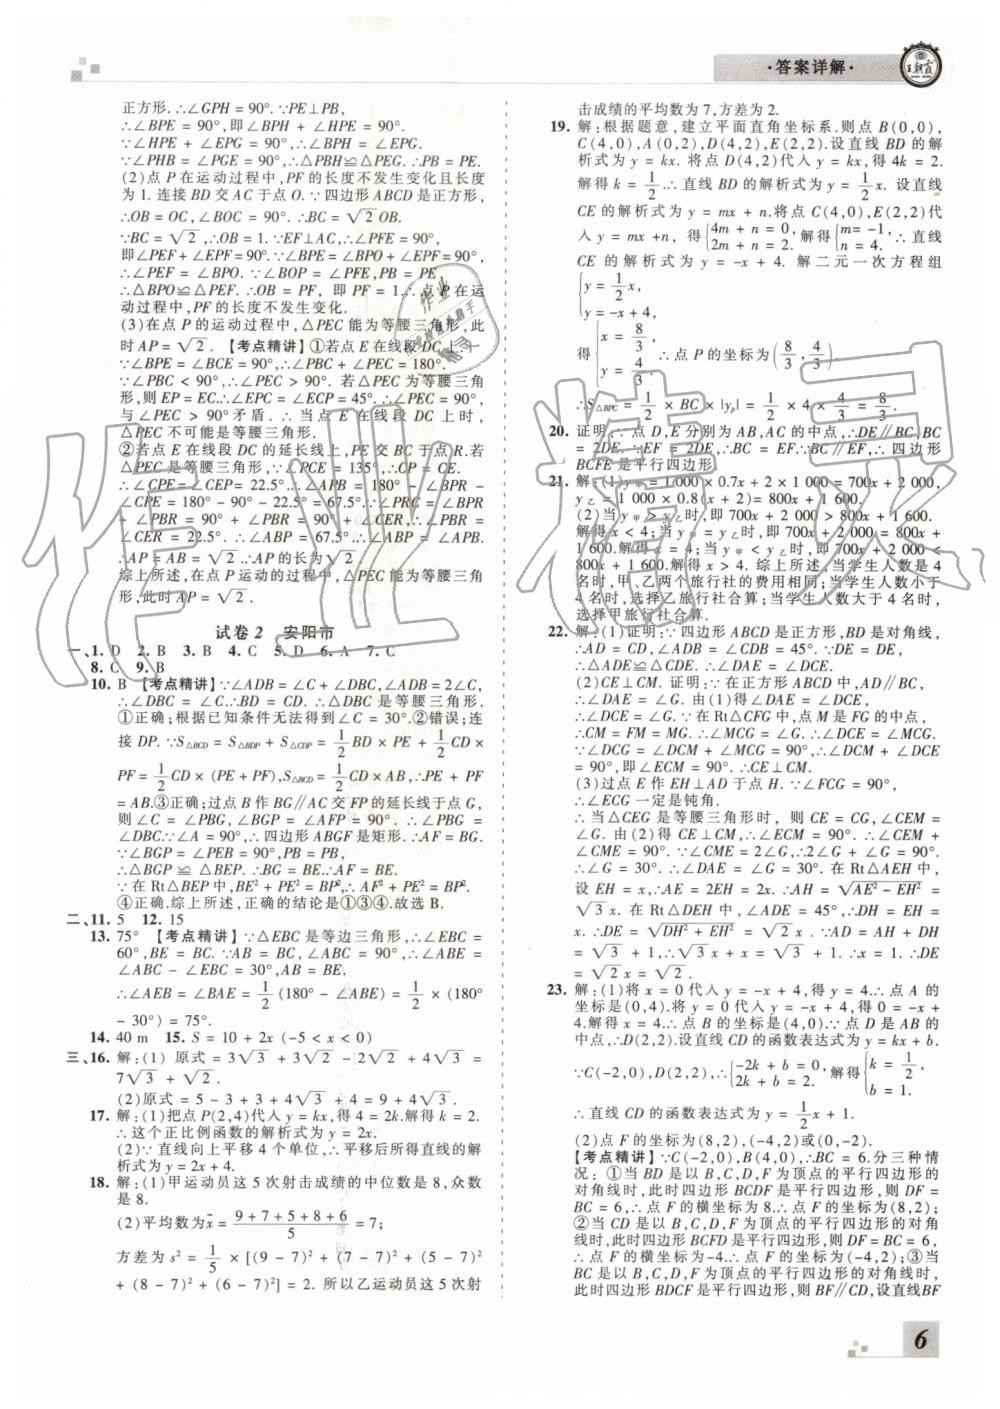 ·答案详解·
王朝霞
正方形.∴∠GPH = 90°.∵PE⊥PB,
∴∠BPE = 90°,即∠BPH + ∠HPE = 90°.
∵∠HPE + ∠EPG = 90°,∴∠BPH = ∠EPG.
∵∠PHB = ∠PGE = 90°,∴△PBH≌△PEG.∴PB = PE.
(2)点P在运动过程中,PF的长度不发生变化且长度
为1.连接BD交AC于点O.∵四边形ABCD是正方形,
∴OB = OC,∠BOC = 90°.∴BC = √2 OB.
∵BC = √2,∴OB = 1.∵EF⊥AC,∴∠PFE = 90°.
即∠PEF + ∠EPF = 90°.∵∠BPE = ∠BPO + ∠EPF = 90°.
∴∠PEF = ∠BPO.∵∠BOP = ∠PFE,PB = PE
∴△BPO≌△PEF.∴OB = PF,即PF = 1.∴点P在运
动过程中,PF的长度不发生变化.
(3)在点P的运动过程中,△PEC能为等腰三角形,此
时AP = √2.【考点精讲】①若点E在线段DC上.
∵∠BPE = ∠BCE = 90°,∴∠PBC + ∠PEC = 180°.
∵∠PBC < 90°,∴∠PEC > 90°.若△PEC为等腰三角
形,则EP = EC.∴∠EPC = ∠ECP = 45°.∴∠PEC = 90°,
与∠PEC > 90°矛盾.∴当点E在线段DC上时,
△PEC不可能是等腰三角形.
②若点E在线段DC的延长线上,PE交BC于点R.若
△PEC是等腰三角形,∵∠PCE = 135°,∴CP = CE.
∴∠CPE = ∠CEP = 22.5°.∴∠APB = 180° − ∠BPR −
∠CPE = 180° − 90° − 22.5° = 67.5°.∵∠PRC = ∠BPR
+ ∠PBR = 90° + ∠PBR = 90° + ∠CER,∴∠PBR =
∠CER = 22.5°.∴∠ABP = 67.5°.∴∠APB = ∠ABP.
∴AP = AB = √2.∴AP的长为√2
综上所述,在点P运动的过程中,△PEC能为等腰三角
形,此时AP = √2.
试卷2 安阳市
一、1. D 2. B 3. B 4. C 5. D 6. A 7. C
8. C 9. B
10. B 【考点精讲】∵∠ADB = ∠C + ∠DBC,∠ADB = 2∠C,
∴∠DBC = ∠C.∴BD = CD.∴△DBC是等腰三角形.
①正确;根据已知条件无法得到∠C = 30°.②错误;连
接DP.∵S△BCD = S△BDP + S△CDP = 1/2 BD × PE + 1/2 CD ×
PF = 1/2 CD × (PE + PF),S△BCD = 1/2 CD × AB,∴PE + PF
= AB.③正确;过点B作BG∥AC交FP的延长线于点G,
则∠C = ∠PBG,∠BGP = ∠AFP = 90°.∴∠PBG =
∠DBC.∵∠A = 90°,∴四边形ABGF是矩形.∴AF = BG.
∵∠BGP = ∠PEB = 90°,PB = PB,
∴△BGP ≌ △BEP.∴BG = BE.∴AF = BE.
∵在Rt△BEP中,BE² + PE² = BP²,∴AF² + PE² = BP².
④正确.综上所述,正确的结论是①③④.故选B.
二、11. 5 12. 15
13. 75° 【考点精讲】∵△EBC是等边三角形,∴∠EBC =
60°,BE = BC.∵AB = BC,∠ABC = 90°,∴∠ABE =
∠ABC − ∠EBC = 30°,AB = BE.
∴∠AEB = ∠BAE = 1/2(180° − ∠ABE) = 1/2 × (180°
− 30°) = 75°.
14. 40 m 15. S = 10 + 2x(−5 < x < 0)
三、16. 解:(1)原式 = 3√3 + 3√3 − 2√2 + 4√3 =
7√3 + √2.
(2)原式 = 5 − 3 + 3 + 4√3 + 4 = 9 + 4√3.
17. 解:(1)把点P(2,4)代入y = kx,得4 = 2k.解得k = 2.
∴这个正比例函数的解析式为y = 2x.
(2)∵直线向上平移4个单位,∴平移后所得直线的解
析式为y = 2x + 4.
18. 解:(1)甲运动员这5次射击成绩的中位数是8,众数
是8.
(2)平均数为x̄ = (9 + 7 + 5 + 8 + 6)/5 = 7;
方差为s² = 1/5 × [(9 − 7)² + (7 − 7)² + (5 − 7)²
+ (8 − 7)² + (6 − 7)²] = 2. 所以乙运动员这5次射
击成绩的平均数为7,方差为2.
19. 解:根据题意,建立平面直角坐标系.则点B(0,0),
C(4,0),A(0,2),D(4,2),E(2,2).设直线BD的解
析式为y = kx.将点D(4,2)代入y = kx,得4k = 2.
解得k = 1/2.∴直线BD的解析式为y = 1/2 x. 设直线
CE的解析式为y = mx + n.将点C(4,0),E(2,2)代
入y = mx + n,得{4m + n = 0, 2m + n = 2. 解得{m = −1, n = 4. ∴直线
CE的解析式为y = −x + 4. 解二元一次方程组
{y = 1/2 x,
y = −x + 4,
得{x = 8/3, y = 4/3. ∴点P的坐标为(8/3, 4/3)
∴S△BPC = 1/2 × BC × |yp| = 1/2 × 4 × 4/3 = 8/3.
20. 证明:∵点D,E分别为AB,AC的中点,∴DE∥BC,BC
= 2DE.∵EF = 2DE,∴BC = EF.∵BC∥EF,∴四边形
BCFE是平行四边形
21. 解:(1)y甲 = 1 000 × 0.7x + 2 × 1 000 = 700x + 2 000,
y乙 = 1 000 × 0.8(x + 2) = 800x + 1 600.
(2)当y甲 > y乙时,即700x + 2 000 > 800x + 1 600.
解得x < 4;当y甲 = y乙时,即700x + 2 000 = 800x +
1 600.解得x = 4;当y甲 < y乙时,即700x + 2 000 <
800x + 1 600.解得x > 4. 综上所述,当学生人数是4
名时,甲、乙两个旅行社的费用相同;当学生人数小于
4名时,选择乙旅行社合算;当学生人数大于4名时,
选择甲旅行社合算.
22. 解:(1)证明:∵四边形ABCD是正方形,BD是对角线,
∴AD = CD,∠ADB = ∠CDB = 45°.∵DE = DE,
∴△ADE≌△CDE.∴∠DAE = ∠DCE.
(2)CE⊥CM. 证明:∵在正方形ABCD中,AD∥BC,
∴∠DAE = ∠G.由(1)得∠DAE = ∠DCE,
∴∠DCE = ∠G.∵在Rt△CFG中,点M是FG的中点,
∴CM = FM = MG.∴∠MCG = ∠G.∴∠DCE = ∠MCG.
∵∠DCG = ∠DCM + ∠MCG = 90°,∴∠DCM + ∠DCE
= 90°,即∠ECM = 90°.∴CE⊥CM.
(3)过点E作EH⊥AD于点H.∵∠FCG = 90°,
∴∠ECG一定是钝角.
∴当△CEG是等腰三角形时,则CE = CG,∠CEM =
∠G. 由(2)得CE⊥CM,∴∠ECM = 90°.∴∠CEM +
∠CME = 90°.∵∠CME = 2∠G,∴2∠G + ∠G = 90°.
∴∠G = 30°.∴∠DAE = ∠G = 30°.在Rt△AEH中,
设EH = x,∴AE = 2EH = 2x.∴AH = √(AE² − EH²) =
√3 x.在Rt△DEH中,∠HDE = 45°,∴DH = EH =
x.∴DE = √(DH² + EH²) = √2 x.∵AD = AH + DH
= √3 + 1,∴√3 x + x = √3 + 1.解得x = 1.∴DE
= √2 x = √2.
23. 解:(1)将x = 0代入y = −x + 4,得y = 4.∴点A的
坐标是(0,4).将y = 0代入y = −x + 4,得0 = −x +
4.解得x = 4.∴点B的坐标是(4,0).∵点D是AB的
中点,∴D(2,2).设直线CD的函数表达式为y = kx + b.
∵C(−2,0),D(2,2),∴{−2k + b = 0, 2k + b = 2. 解得{k = 1/2, b = 1.
∴直线CD的函数表达式为y = 1/2 x + 1.
(2)点F的坐标为(8,2),(−4,2)或(0,−2).
【考点精讲】∵C(−2,0),B(4,0),∴BC = 6.分三种情
况:①当BD是以B,C,D,F为顶点的平行四边形的
对角线时,此时四边形BCDF是平行四边形,则DF =
BC = 6,∴点F的横坐标为8.∴点F的坐标为(8,2);
②当CD是以B,C,D,F为顶点的平行四边形的对角
线时,此时四边形BCFD是平行四边形,则DF = BC = 6,
∴点F的横坐标为−4.∴点F的坐标为(−4,2);③当
BC是以B,C,D,F为顶点的平行四边形的对角线时,
此时四边形BDCF是平行四边形,则BF∥CD,设直线BF
6
作业精灵